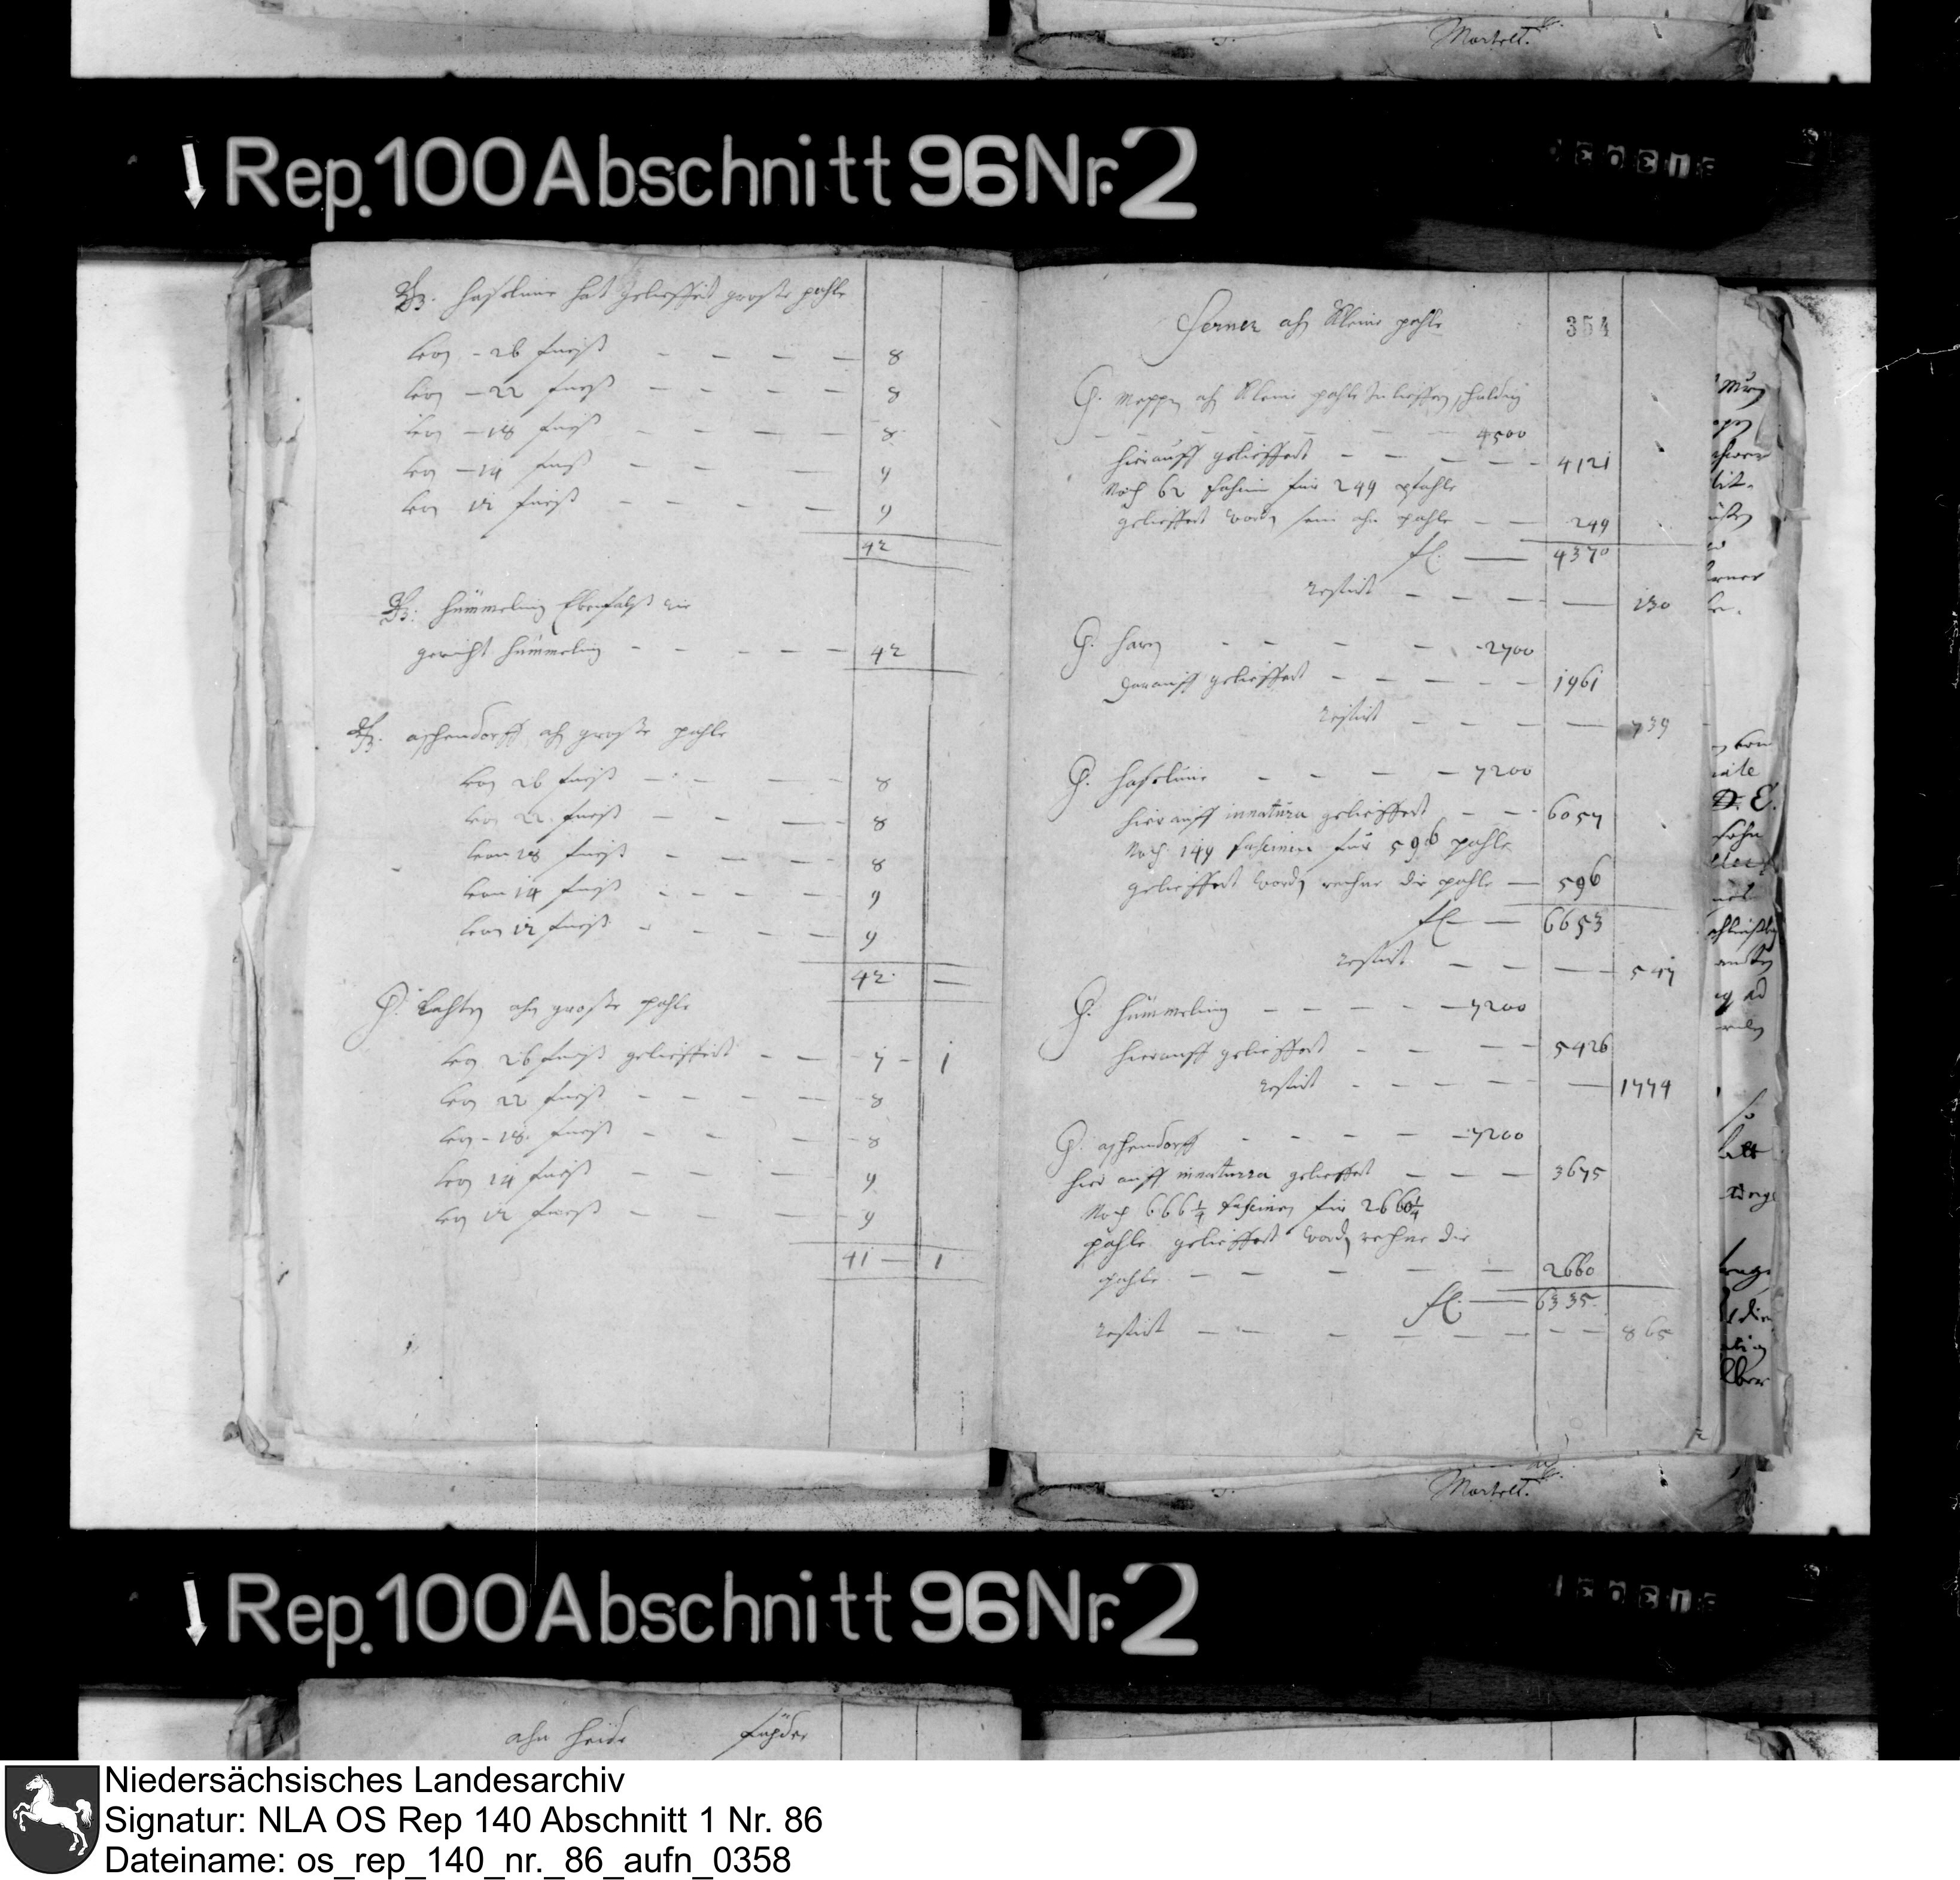 Martell.
Rep. 100 Abschnitt 96 Nr. 2
haselünne hat gelieffert grosse pohle
von - 26 fueß - - - - 8
von - 22 fueß - - - - 8
von - 18 fueß - - - - 8
von - 14 fueß - - - 9
von 12 fueß - - - - 9
42
hümmeling Ebenfalß wie
gericht hümmeling - - - - - 42
aschendorff ahn grosse pohle
von 26 fueß - - - - 8
von 22 fueß - - - 8
von 18 fueß - - - - 8
von 14 fueß - - - - 9
von 12 fueß - - - - 9
42 —
G. Lahten ahn grosse pohle
von 26 fueß gelieffert - - 7 - 1
von 22 fueß - - - - 8
von - 18 fueß - - - 8
von 14 fueß - - - 9
von 12 fueß - - - - 9
41 — 1
ferner ahn kleine pohle
354
G. Meppen ahn kleine pohle zu lieffern schuldig
- - - - - 4500
hierauff gelieffert - - - - - 4121
Noch 62 für 249 pfahle
gelieffert worden sein ahn pohle - - 249
4370
restirt - - - - — 130
G. haren - - - - - 2700
darauff gelieffert - - - - - 1961
restirt - - - - — 739
G. haselünne - - - - - 7200
hierauff innatura gelieffert - - - 6057
Noch 149 fascinen für 596 pohle
gelieffert worden rechne die pohle — 596
6653
restirt - - - — 547
G. hümmeling - - - - - 7200
hierauff gelieffert - - - - 5426
restirt - - - - - — 1774
G. aschendorff - - - - - 7200
hier auff innaturra gelieffert - - - 3675
Noch 666 1/4 fascinen für 2660 1/4
pohle gelieffert worden rechne die
pohle - - - - - 2660
6335
restirt - - - - - - - - 865
Martell.
Rep. 100 Abschnitt 96 Nr. 2
ahn heide
Niedersächsisches Landesarchiv
Signatur: NLA OS Rep 140 Abschnitt 1 Nr. 86
Dateiname: os_rep_140_nr._86_aufn_0358